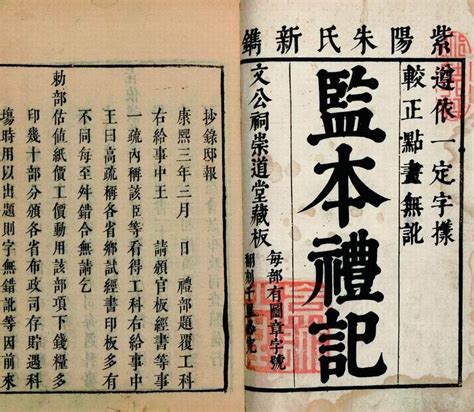 紫陽朱氏新鐫
遵依一定字樣
較正點畫無訛
監本禮記
文公祠崇道堂藏板
每部有圖章字號
抄錄邸報
康熙三年三月 日 禮部題覆工科
右給事中王 請頒官板經書等事
一疏內稱該臣等看得工科右給事中
王曰高疏稱各省鄉試經書印板多有
不同每至舛錯合無請乞
勅部估値紙價工價動用該部項下錢糧多
印幾十部分頒各省布政司存貯遇科
塲時用以出題則字無錯訛等因前來